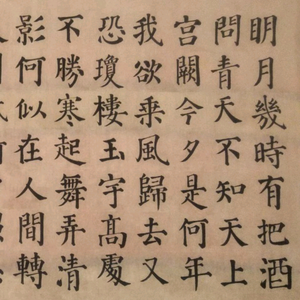 明月幾時有把酒
問青天不知天上
宮闕今夕是何年
我欲乗風歸去又
恐瓊樓玉宇髙處
不勝寒起舞弄清
影何似在人間轉